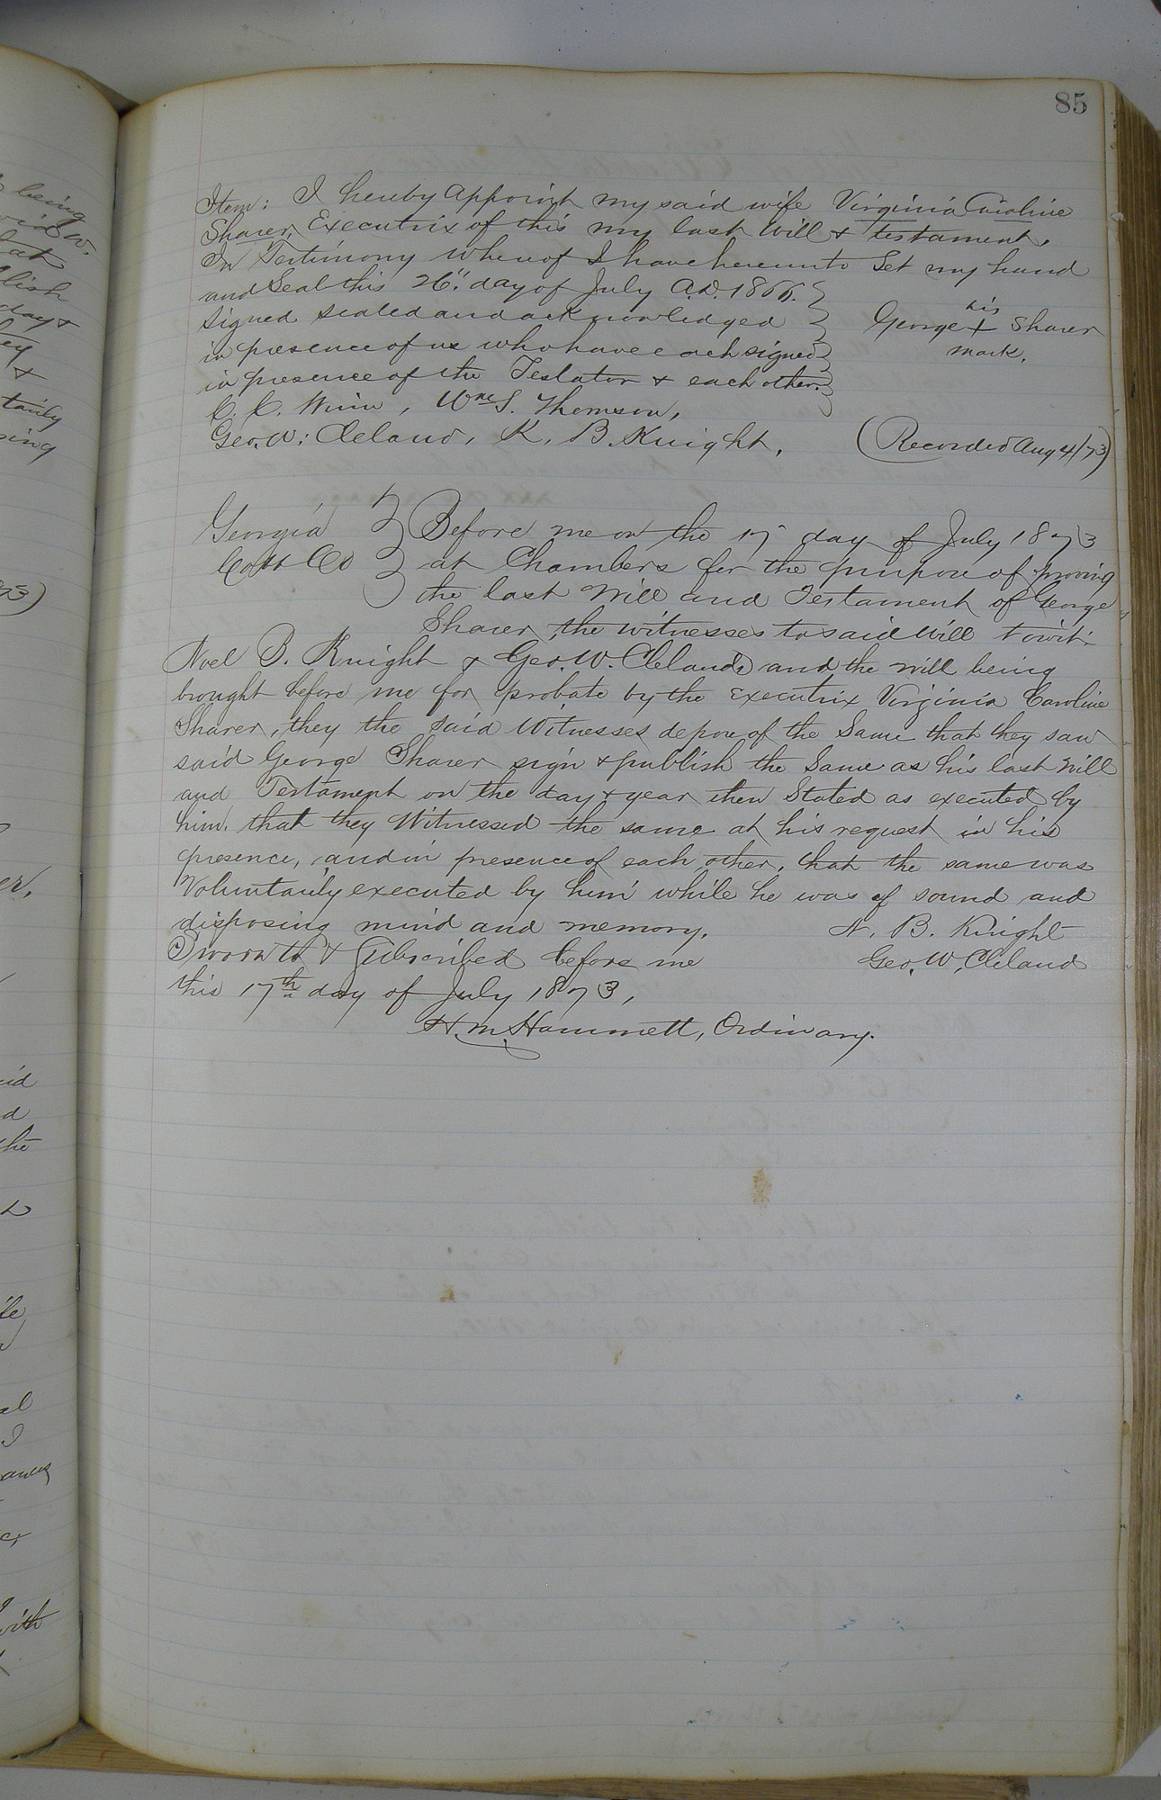 85
Item: I hereby appoint my said wife Virginia Caroline
Sharer, Executrix of this my last Will & testament.
In Testimony whereof I have hereunto Set my hand
and Seal this 26" day of July A.D. 1866.
Signed sealed and acknowledged
in presence of us who have each signed
in presence of the Testator & each other.
his
George + Sharer
mark.
C. C. Winn, Wm S. Thomson,
Geo. W: Cleland, K. B. Knight,
(Recorded Aug 4/73)
Georgia
Cobb Co
Before me on the 17 day of July 1873
at Chambers for the purpose of proving
the last Will and Testament of George
Sharer the witnesses to said Will towit:
Noel B. Knight & Geo. W. Cleland and the will being
brought before me for probate by the executrix Virginia Caroline
Sharer, they the said Witnesses depose of the Same that they saw
said George Sharer sign & publish the Same as his last Will
and Testament on the day & year then Stated as executed by
him. that they Witnessed the same at his request in his
presence, and in presence of each other. that the same was
Voluntarily executed by him while he was of sound and
disposing mind and memory.
N. B. Knight
Geo. W. Cleland
Sworn to & Subscribed before me
this 17th day of July 1873,
H. M. Hammett, Ordinary.